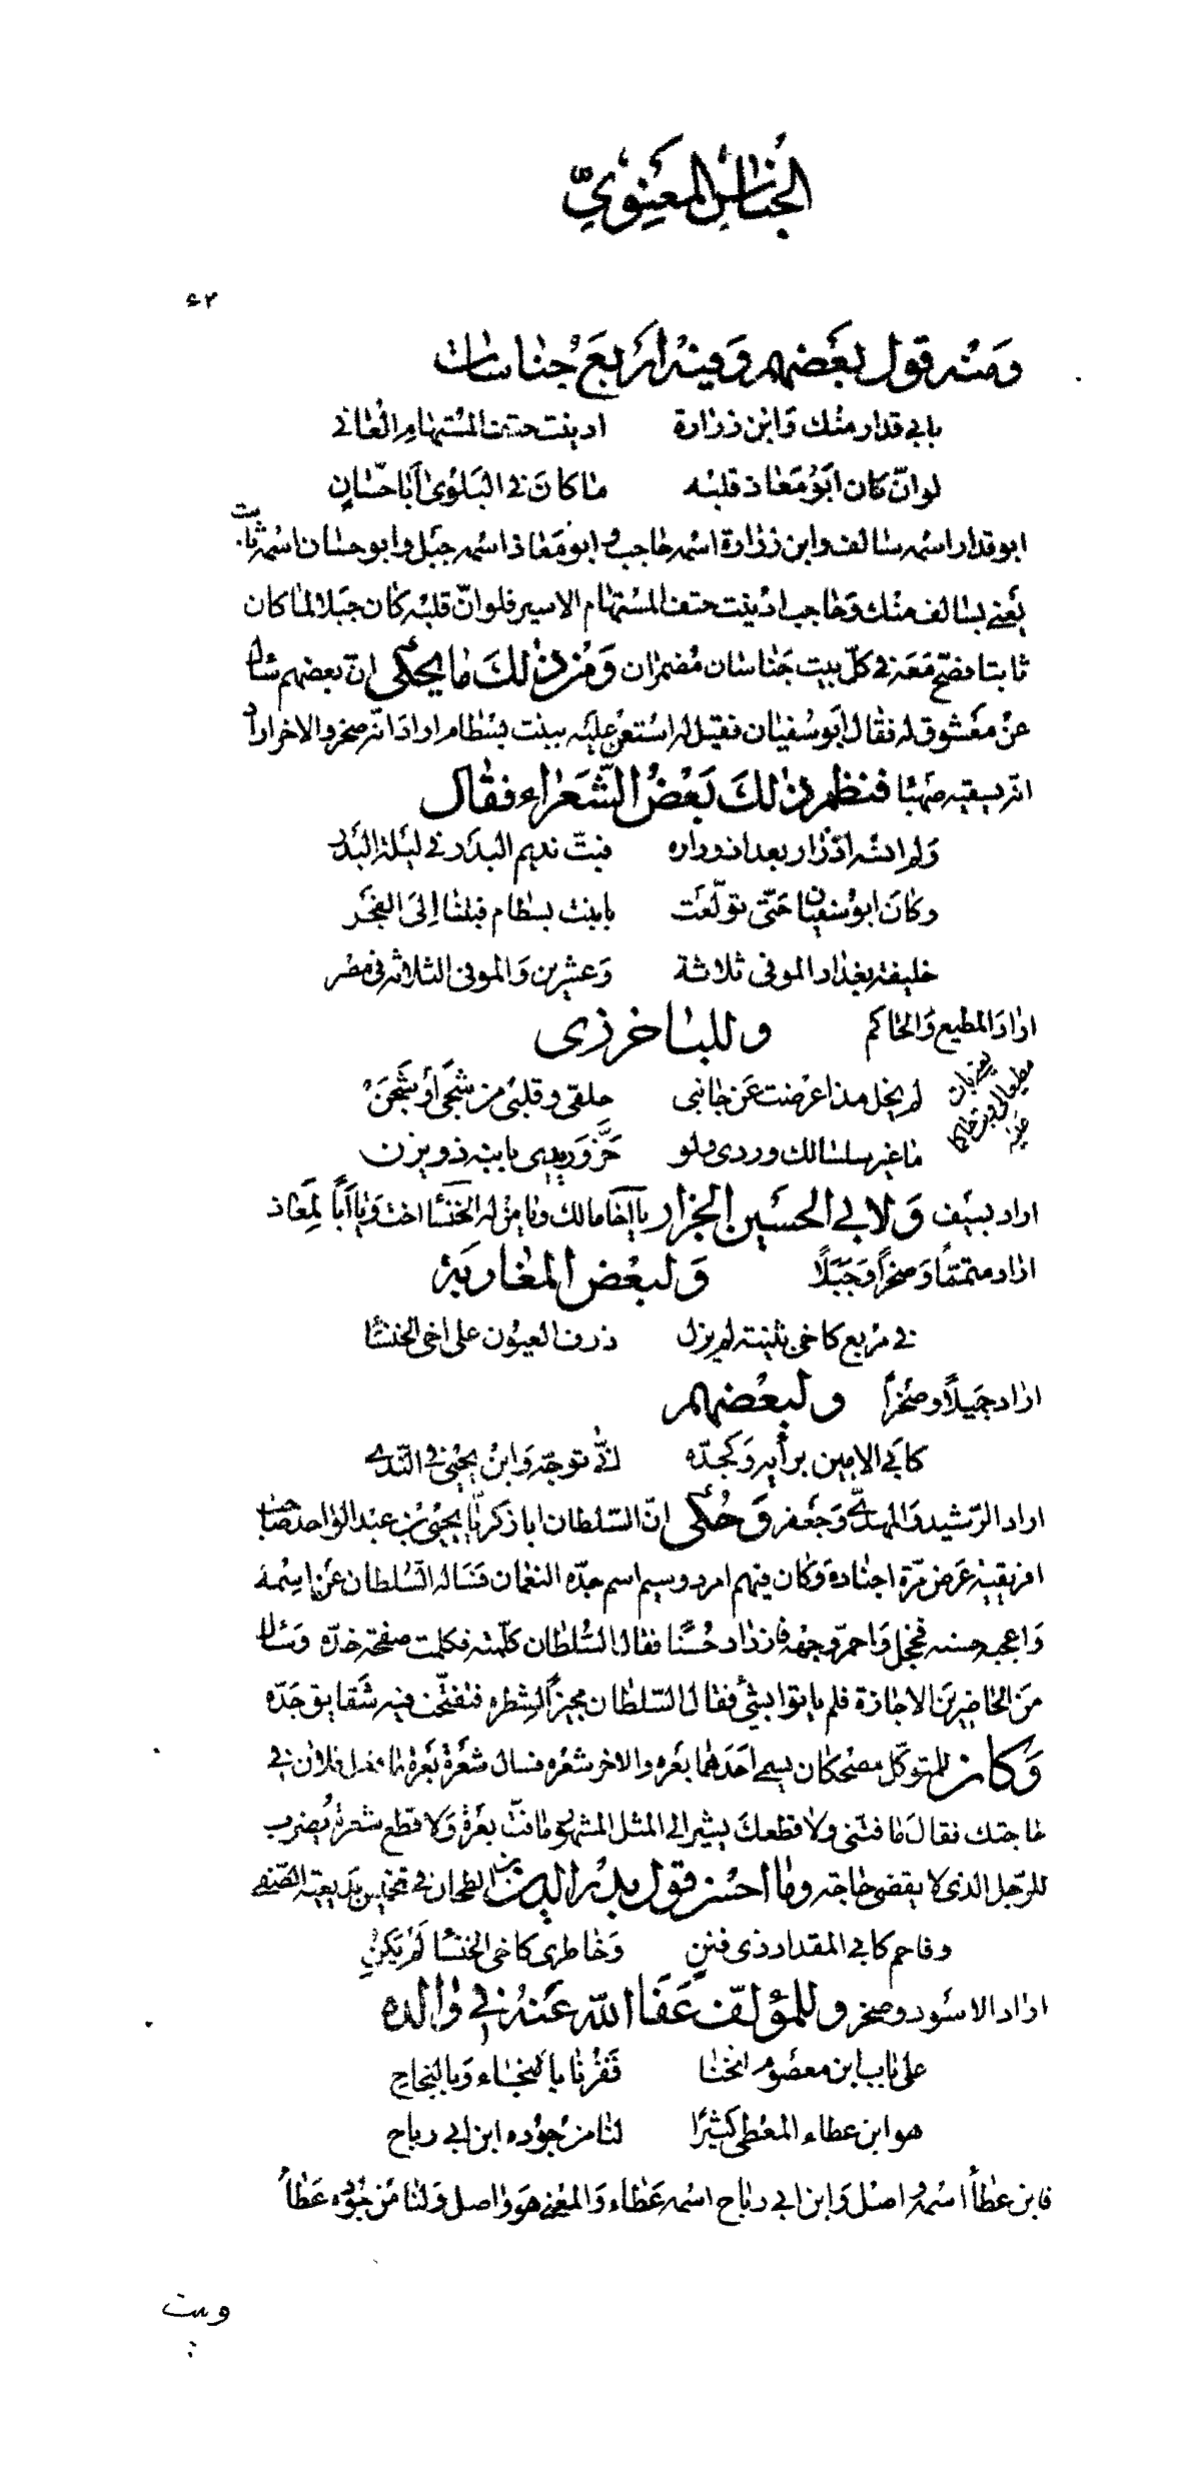 الجناس المعنوي
٤٢
ومنه قول بعضهم وفيه اربع جناسات
بابي قدار منك وابن زرارة ادينت حتف المستهام العاني
لو انّ كان ابو معاذ قلبه ما كان في البلوى ابا حسّان
ابو قدار اسمه سالف وابن زرارة اسمه حاجب وابو معاذ اسمه جبل وابو حسان اسمه ثابت
يعني بسالف منك وحاجب ادنيت حتف المستهام الاسير فلو انّ قلبه كان جبلا لما كان
ثابتا فصحّ معه في كلّ بيت جناسان مضمران ومن ذلك ما يحكى انّ بعضهم سال
عن معشوق له فقال ابو سفيان فقيل له استعن عليه ببنت بسطام اراد انّه صخر والاخر اراد
انّه يسقيه صهبا فنظم ذلك بعض الشعراء فقال
ولم انسه اذ زار بعد ازوراره فبتّ نديم البدر في ليلة البدر
وكان ابو سفيان حتّى تولّعت بابنت بسطام فبلنا الى الفجر
خليفة بغداد الموفى ثلاثة وعشرين والموفى الثلاثه في مصر
اراد المطيع والحاكم وللباخرزى
لم يخل مذ اعرضت عن جانبى حلقى وقلبى من شجى او شجن
ما غير سلسالك وردى ولو حزّ وريدى بابنه ذو يزن
اراد بسيف ولابي الحسين الجزار يا اخا مالك ويا من له الخنسا اخت ويا ابا لمعاذ
اراد متمّما وصخراً وجبلاً ولبعض المغاربة
في مربع كاخى بثينته لم يزل ذرف العيون على اخى الخنسا
اراد جميلاً وصخراً ولبعضهم
كابي الامين برأيه وكجدّه انّى توجّه وابن يحيى في النّدى
اراد الرّشيد والمهدىّ وجعفر وحكى انّ السّلطان ابا زكريّا يحيى بن عبد الواحد صاحب
افريقية عرض مرّة اجناده وكان فيهم امرد وسيم اسم جدّه النعمان فساله السّلطان عن اسمه
واعجبه حسنه فخجل واحمرّ وجهه فازداد حُسناً فقال السّلطان كلّمته فكلمت صفحة خدّه وسال
من الحاضرين الاجازة فلم ياتوا بشئ فقال السّلطان مجيزاً لشطره فتفتّحت فيه شقايق جدّه
وكان للمتوكّل مضحكان يسمى احدهما بعره والاخر شعره فسال شعرة بعرة ما فعل فلان في
حاجتك فقال ما فتّنى ولا قطعك يشير الى المثل المشهور ما فتّ بعرة ولا قطع شعرة يُضرب
للرّجل الذى لا يقضى حاجته وما احسن قول بدر الدين بن الطحان في تخميس بديعية الصّفى
وفاحم كابي المقداد ذى فنن وخاطرى كاخى الخنسا لم يكن
اراد الاسود وصخر وللمؤلّف عفا الله عنه في والده
على باب ابن معصوم انخنا ففزنا بالنجاء وبالنجاح
هو ابن عطاء المعطى كثيرًا لنا من جوده ابن ابي رباح
فابن عطأ اسمه واصل وابن ابي رباح اسمه عطاء والمعنى هو واصل ولنا من جوده عطأ